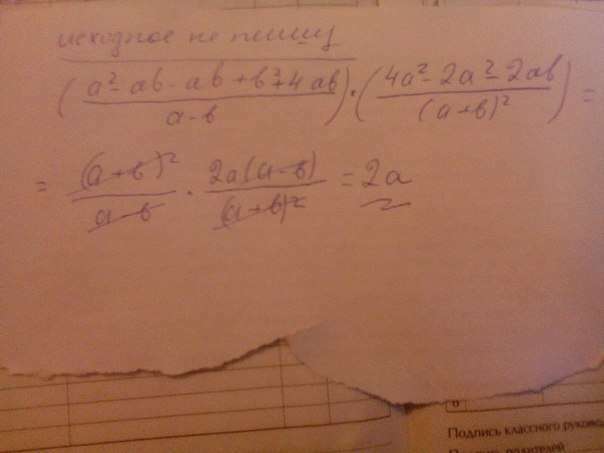 исходное не пишу
(a² - ab - ab + b² + 4ab / a - b) · (4a² - 2a² - 2ab / (a + b)²) =
= (a + b)² / a - b · 2a(a - b) / (a + b)² = 2a
6
Подпись классного руковод
родителей